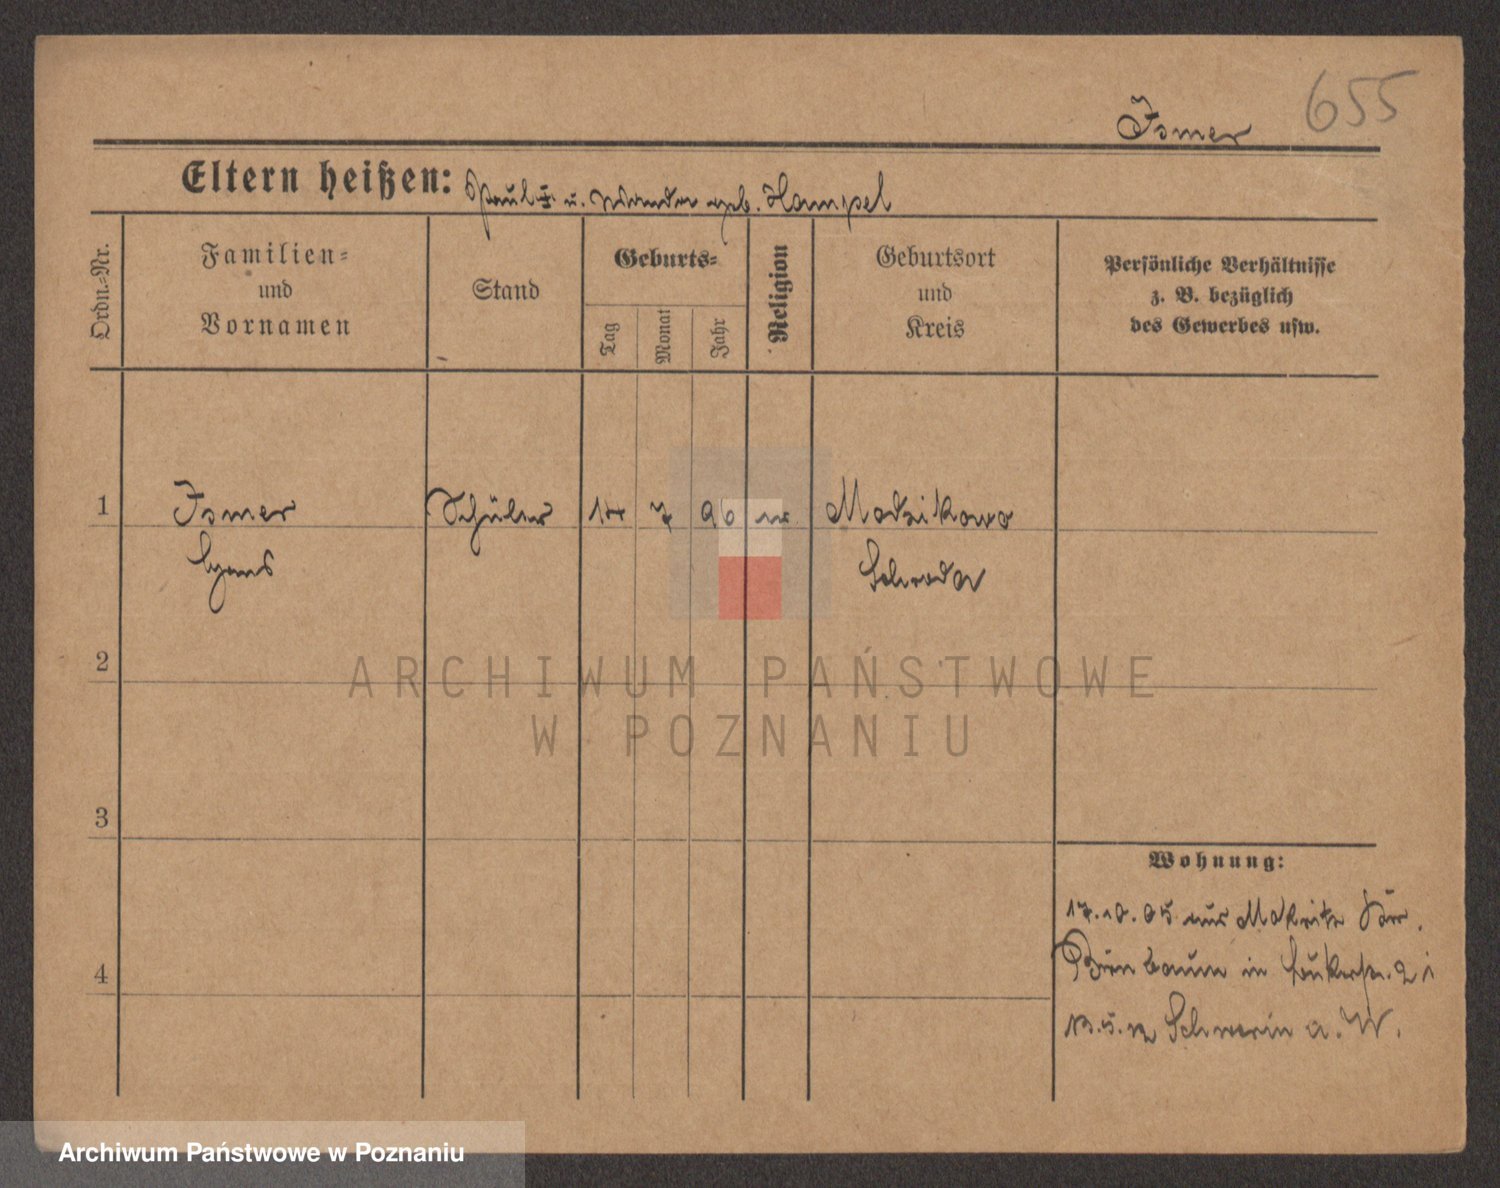 655
Ismer
Eltern heißen: Paul I. u. Wanda geb. Hampel
Ordn.=Nr.
Familien=
und
Vornamen
Stand
Geburts=
Tag
Monat
Jahr
Religion
Geburtsort
und
Kreis
Persönliche Verhältnisse
z. B. bezüglich
des Gewerbes usw.
1
Ismer
Schüler
7
96
Modzikowo
Schroda
2
ARCHIWUM PAŃSTWOWE
W POZNANIU
3
Wohnung:
17.10.05 aus
Birnbaum in
4
Schwerin a. W.
Archiwum Państwowe w Poznaniu